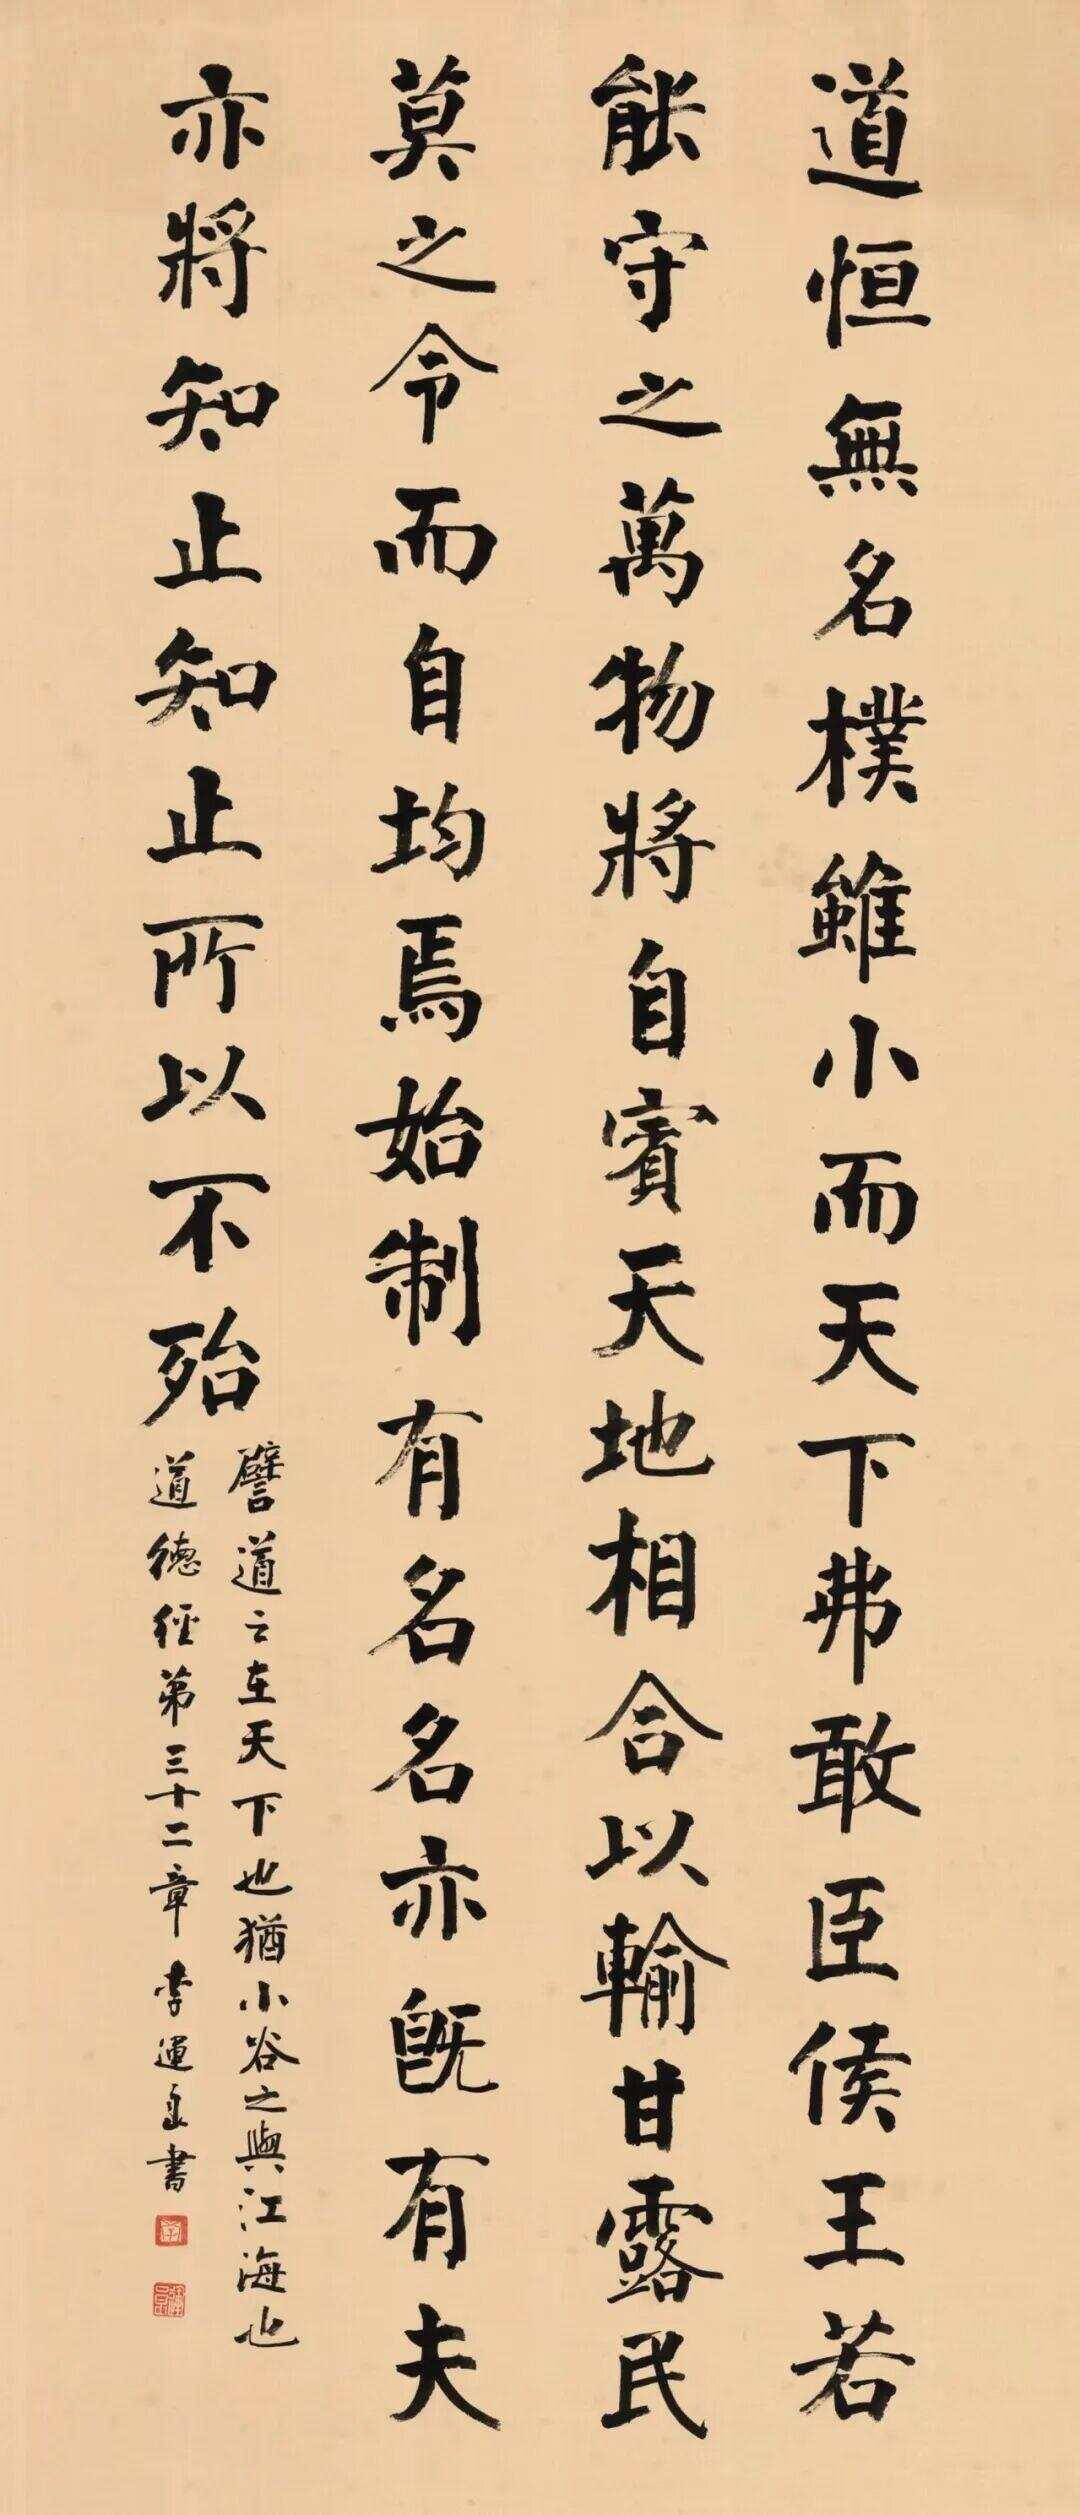 道恒無名樸雖小而天下弗敢臣侯王若
能守之萬物將自賓天地相合以輸甘露民
莫之令而自均焉始制有名名亦既有夫
亦將知止知止所以不殆
譬道之在天下也猶小谷之與江海也
道德經第三十二章 李運良書